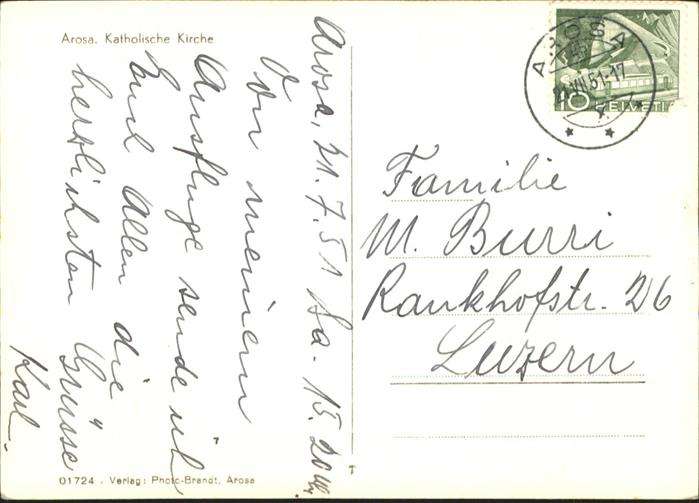 Arosa. Katholische Kirche
Arosa, 21.7.51 Sa. 15.20 Uhr
Von meinem
Ausfluge sende ich
Euch Allen die
herzlichsten Grüsse
Karl.
7
01724 . Verlag: Photo-Brandt, Arosa
AROSA
21.VII.51-17
10 HELVETIA
Familie
M. Burri
Rankhofstr. 26
Luzern